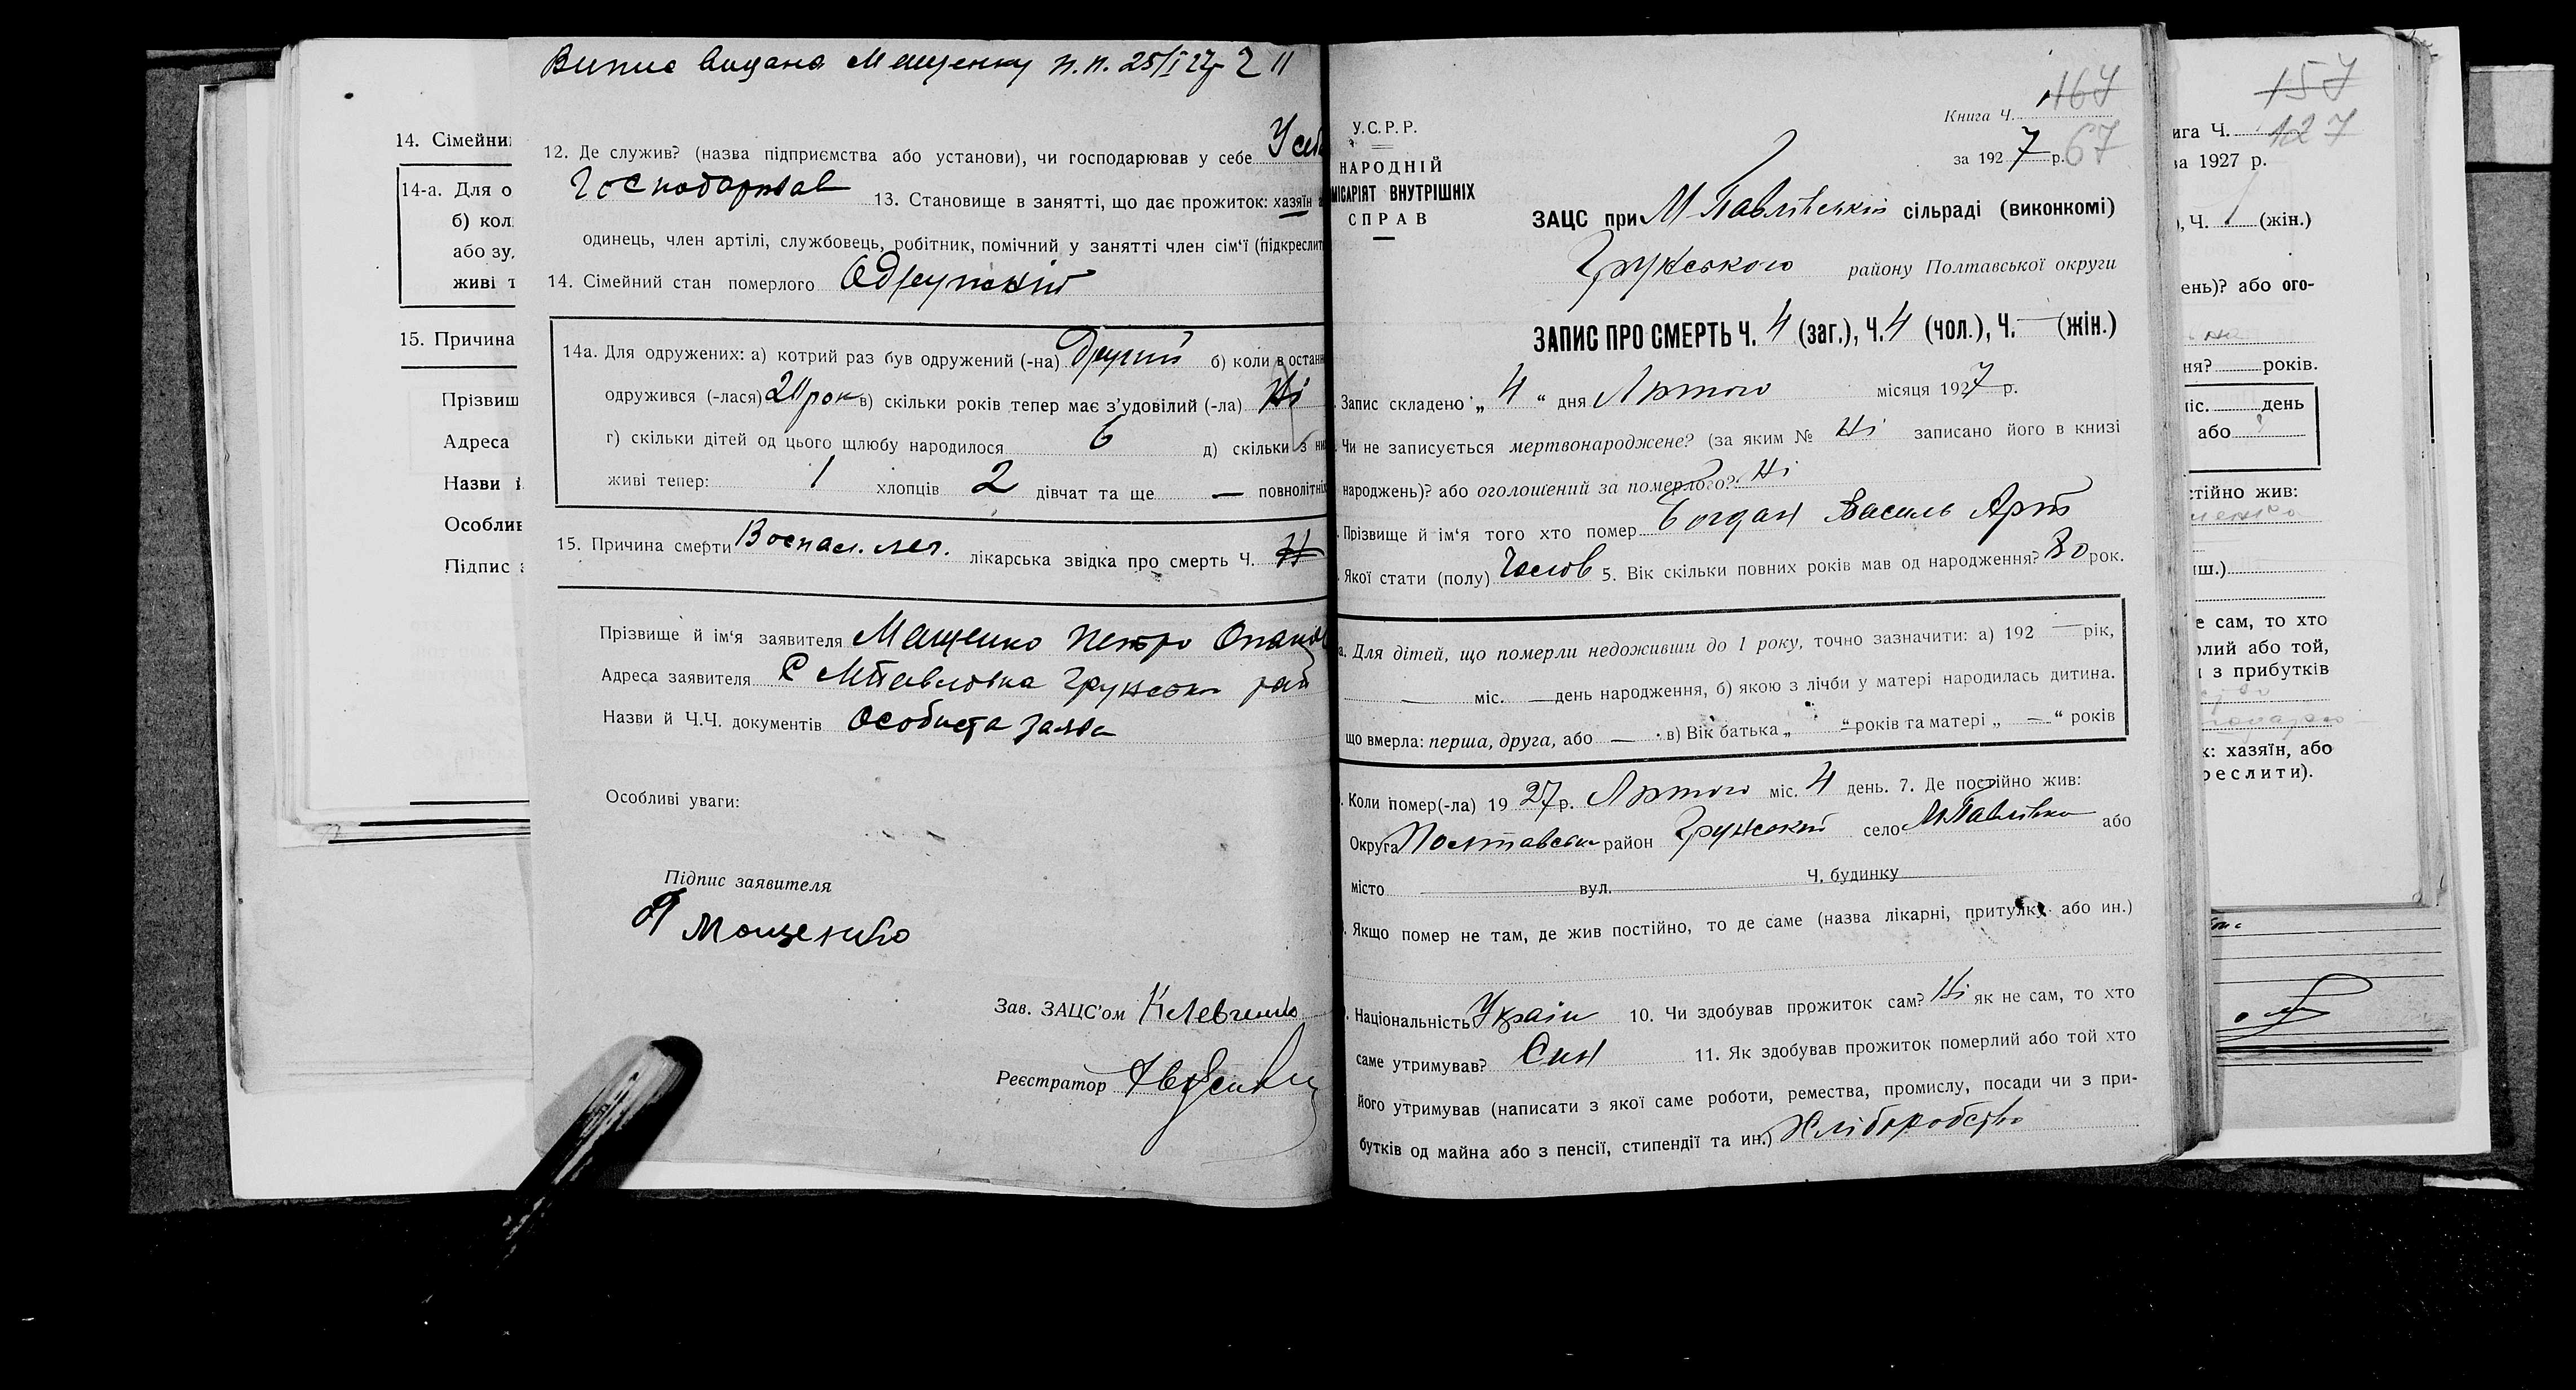 14. Сімейни
14-а. Для о
б) кол
або зу
живі т
15. Причина
Прізвищ
Адреса
Назви
Особлив
Підпис
Випис видана Мащенку п.п. 25/I 27р 2 11
12. Де служив? (назва підприємства або установи), чи господарював у себе У себе
Господарював 13. Становище в занятті, що дає прожиток: хазяїн
одинець, член артілі, службовець, робітник, помічний у занятті член сім'ї (підкреслит
14. Сімейний стан померлого Одружений
14а. Для одружених: а) котрий раз був одружений (-на) Другий б) коли в останн
одружився (-лася) 20 рок в) скільки років тепер має з'удовілий (-ла) Ні
г) скільки дітей од цього щлюбу народилося 6 д) скільки з ни
живі тепер: 1 хлопців 2 дівчат та ще — повнолітніх
15. Причина смерти Воспал. лег. лікарська звідка про смерть Ч. Н
Прізвище й ім'я заявителя Мащенко Петро Опанов
Адреса заявителя С МПавловка Грунськ рай
Назви й Ч.Ч. документів Особиста заява
Особливі уваги:
Підпис заявителя
П Мащенко
Зав. ЗАЦС'ом К Левченко
Реєстратор
Книга Ч. 167
за 1927 р. 67
У.С.Р.Р.
НАРОДНІЙ
МІСАРІЯТ ВНУТРІШНІХ
СПРАВ
ЗАЦС при М Павлівській сільраді (виконкомі)
Грунського району Полтавської округи
ЗАПИС ПРО СМЕРТЬ Ч. 4 (заг.), Ч. 4 (чол.), Ч. — (жін.)
Запис складено „ 4 “ дня Лютого місяця 1927 р.
Чи не записується мертвонароджене? (за яким № Ні записано його в книзі
народжень)? або оголошений за померлого? Ні
Прізвище й ім'я того хто помер Богдан Василь Арт
Якої стати (полу) Чолов 5. Вік скільки повних років мав од народження? 80 рок.
а. Для дітей, що померли недоживши до 1 року, точно зазначити: а) 192 — рік,
— міс. — день народження, б) якою з лічби у матері народилась дитина.
що вмерла: перша, друга, або — в) Вік батька „ — “ років та матері „ — “ років
Коли помер(-ла) 1927 р. Лютого міс. 4 день. 7. Де постійно жив:
Округа Полтавськ район Грунський село МПавлівка або
місто — вул. — Ч. будинку —
Якщо помер не там, де жив постійно, то де саме (назва лікарні, притулку або ин.)
Національність Україн 10. Чи здобував прожиток сам? Ні як не сам, то хто
саме утримував? Син 11. Як здобував прожиток померлий або той хто
його утримував (написати з якої саме роботи, ремества, промислу, посади чи з при-
бутків од майна або з пенсії, стипендії та ин.) Хліборобство
157
ига Ч. 127
а 1927 р.
), Ч. (жін.)
ень)? або ого-
ня? років.
міс. день
або
стійно жив:
иш.)
е сам, то хто
рлий або той,
и з прибутків
к: хазяїн, або
реслити).